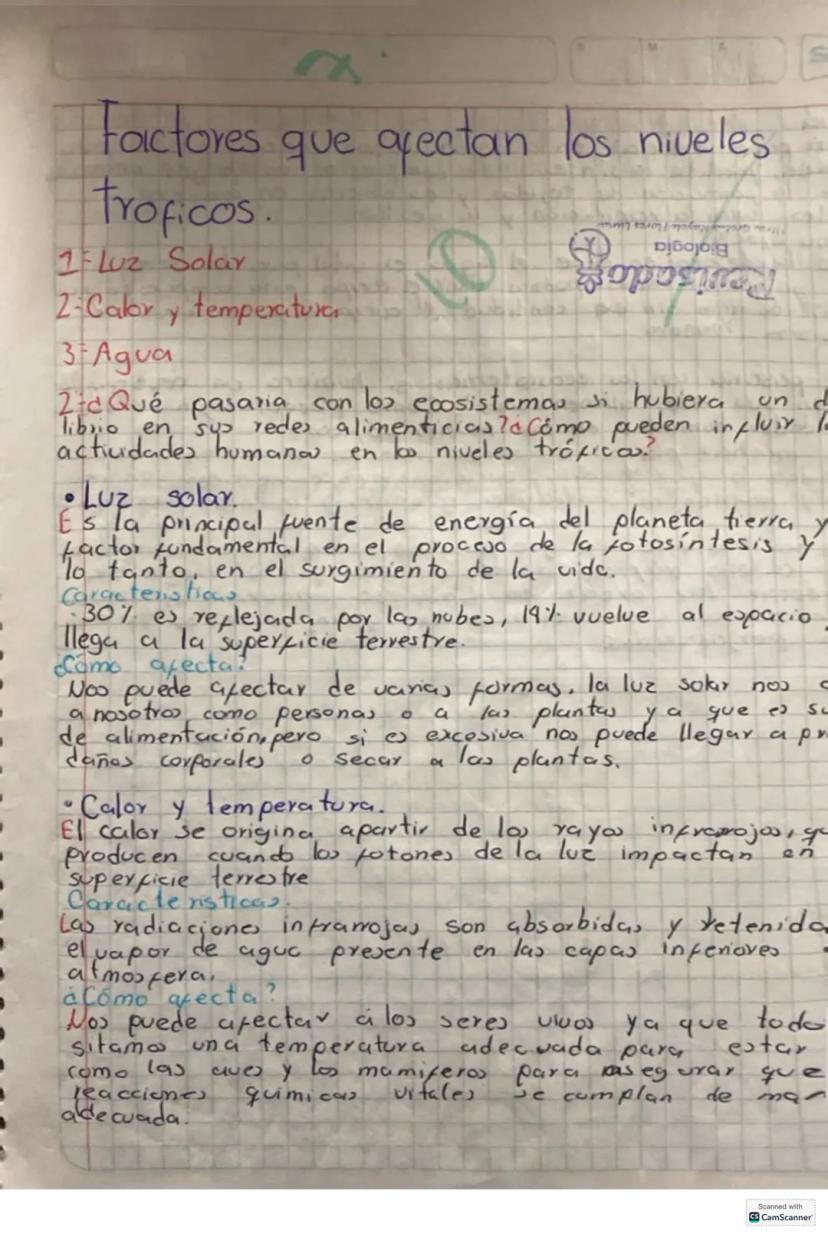 Factores que afectan los niveles
troficos.
Revisado
Biología
10
1-Luz Solar
2-Calor y temperatura
3-Agua
2-¿Qué pasaria con los ecosistemas si hubiera un d
librio en sus redes alimenticias? ¿Cómo pueden influir l
actividades humanas en los niveles tróficos?
• Luz solar.
Es la principal fuente de energía del planeta tierra y
factor fundamental en el proceso de la fotosíntesis y
lo tanto, en el surgimiento de la vida.
Caracteristicas
· 30% es reflejada por las nubes, 19% vuelve al espacio
llega a la superficie terrestre.
¿Cómo afecta?
Nos puede afectar de varias formas. la luz solar nos
a nosotros como personas o a las plantas ya que es su
de alimentación, pero si es excesiva nos puede llegar a pr
daños corporales o secar a las plantas.
• Calor y temperatura.
El calor se origina apartir de los rayos infrarojos, qu
producen cuando los fotones de la luz impactan en
superficie terrestre
Caracteristicas.
Las radiaciones infrarrojas son absorbidas y retenida
el vapor de agua presente en las capas inferiores
atmosfera.
¿Cómo afecta?
Nos puede afectar a los seres vivos ya que todo
sitamos una temperatura adecuada para estar
como las aves y los mamiferos para asegurar que
reacciones quimicas vitales se cumplan de man
adecuada.
Scanned with
CS CamScanner